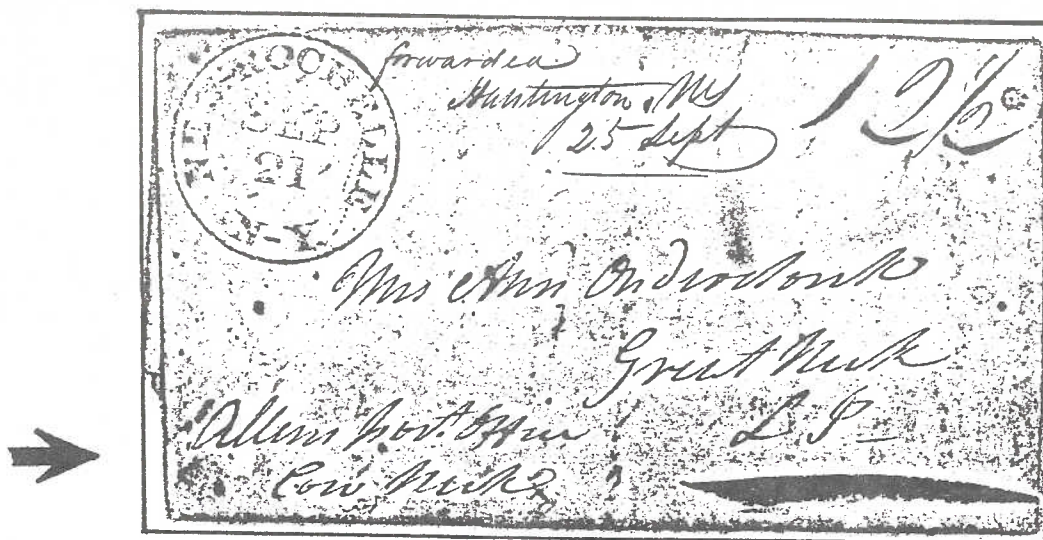 NEW ROCHELLE
SEP
21
N.Y.
forwarded
Huntington, NY
25 Sept
12½
Mrs Ann Onderdonk
Great Neck
L I
Allens Post. Office
Cow Neck